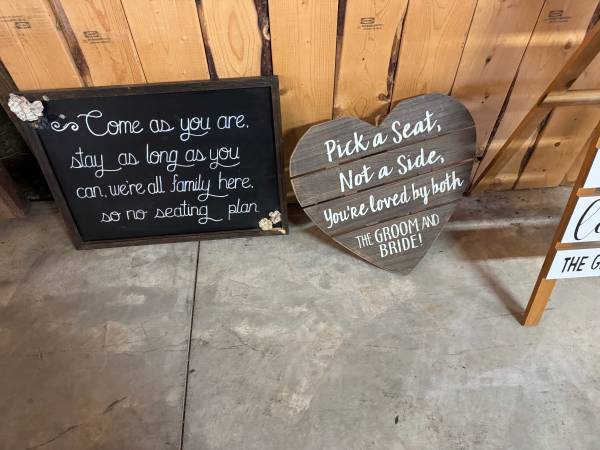 Come as you are,
stay as long as you
can, we're all family here,
so no seating plan
Pick a Seat,
Not a Side,
You're loved by both
THE GROOM AND
BRIDE!
THE G